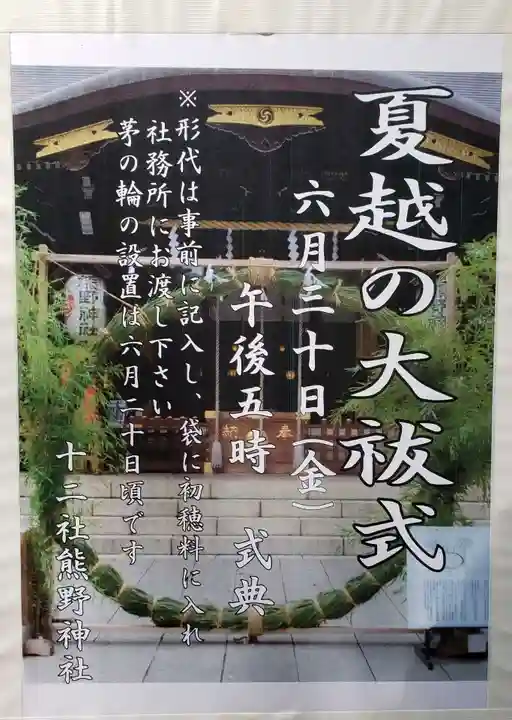 夏越の大祓式
六月三十日(金)
午後五時 式典
※形代は事前に記入し、袋に初穂料に入れ
社務所にお渡し下さい
茅の輪の設置は六月二十日頃です
十二社熊野神社